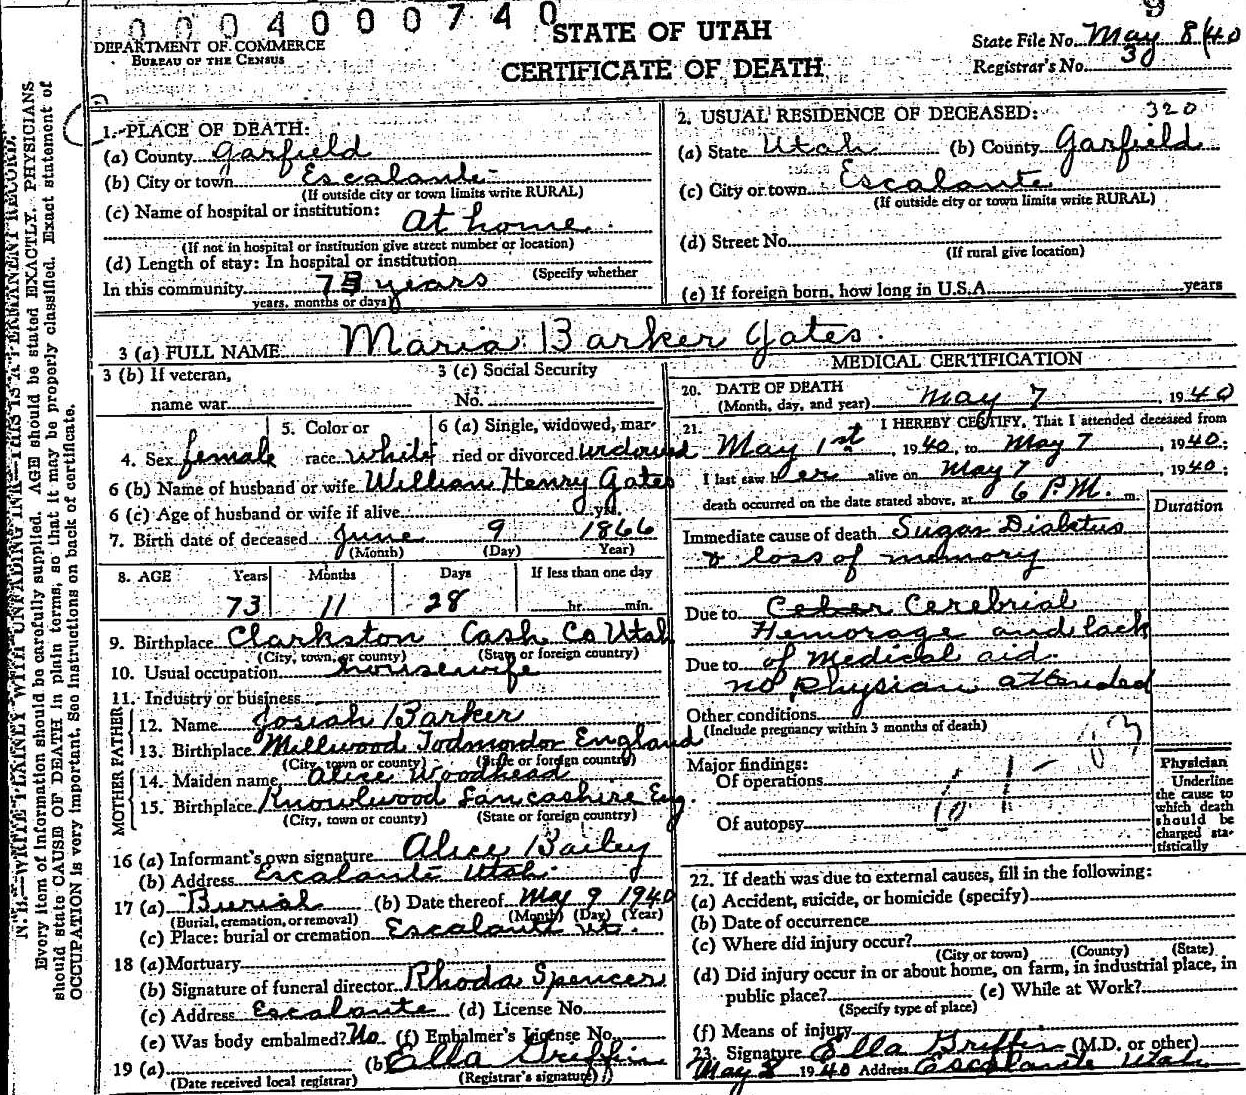 0 0 0 4 0 0 0 7 4 0
9
STATE OF UTAH
CERTIFICATE OF DEATH
DEPARTMENT OF COMMERCE
BUREAU OF THE CENSUS
State File No. May 8/40
Registrar's No. 30
N. B.—WRITE PLAINLY WITH UNFADING INK—THIS IS A PERMANENT RECORD.
Every item of information should be carefully supplied. AGE should be stated EXACTLY. PHYSICIANS
should state CAUSE OF DEATH in plain terms, so that it may be properly classified. Exact statement of
OCCUPATION is very important. See instructions on back of certificate.
1. PLACE OF DEATH:
(a) County Garfield
(b) City or town Escalante
(If outside city or town limits write RURAL)
(c) Name of hospital or institution:
At home
(If not in hospital or institution give street number or location)
(d) Length of stay: In hospital or institution
(Specify whether
In this community 73 years
years, months or days)
2. USUAL RESIDENCE OF DECEASED: 320
(a) State Utah (b) County Garfield
(c) City or town Escalante
(If outside city or town limits write RURAL)
(d) Street No.
(If rural give location)
(e) If foreign born, how long in U.S.A. years
3 (a) FULL NAME Maria Barker Gates
3 (b) If veteran,
name war
3 (c) Social Security
No.
4. Sex female
5. Color or
race white
6 (a) Single, widowed, mar-
ried or divorced widowed
6 (b) Name of husband or wife William Henry Gates
6 (c) Age of husband or wife if alive yrs.
7. Birth date of deceased June 9 1866
(Month) (Day) Year)
8. AGE Years Months Days If less than one day
73 11 28 hr. min.
9. Birthplace Clarkston Cash Co Utah
(City, town, or county) (State or foreign country)
10. Usual occupation housewife
11. Industry or business
FATHER
12. Name Josiah Barker
13. Birthplace Millwood Todmordor England
(City, town or county) (State or foreign country)
MOTHER
14. Maiden name Alice Woodhead
15. Birthplace Knowlwood Lancashire Eng.
(City, town or county) (State or foreign country)
16 (a) Informant's own signature Alice Bailey
(b) Address Escalante Utah.
17 (a) Burial (b) Date thereof May 9 1940
(Burial, cremation, or removal) (Month) (Day) (Year)
(c) Place: burial or cremation Escalante Ut.
18 (a) Mortuary
(b) Signature of funeral director Rhoda Spencer
(c) Address Escalante (d) License No.
(e) Was body embalmed? No (f) Embalmer's License No.
19 (a) (b) Ella Griffin
(Date received local registrar) (Registrar's signature)
MEDICAL CERTIFICATION
20. DATE OF DEATH
(Month, day, and year) May 7, 1940
21. I HEREBY CERTIFY, That I attended deceased from
May 1st, 1940, to May 7, 1940;
I last saw her alive on May 7, 1940;
death occurred on the date stated above, at 6 P.M. m.
Duration
Immediate cause of death Sugar Diabetus
& loss of memory
Due to Ceber Cerebrial
Hemorage and lack
Due to of medical aid.
no physian attended
Other conditions
(Include pregnancy within 3 months of death)
Major findings:
Of operations
Of autopsy
Physician
Underline
the cause to
which death
should be
charged sta-
tistically
22. If death was due to external causes, fill in the following:
(a) Accident, suicide, or homicide (specify)
(b) Date of occurrence
(c) Where did injury occur?
(City or town) (County) (State)
(d) Did injury occur in or about home, on farm, in industrial place, in
public place? (e) While at Work?
(Specify type of place)
(f) Means of injury
23. Signature Ella Griffin (M.D. or other)
May 8 1940 Address Escalante Utah